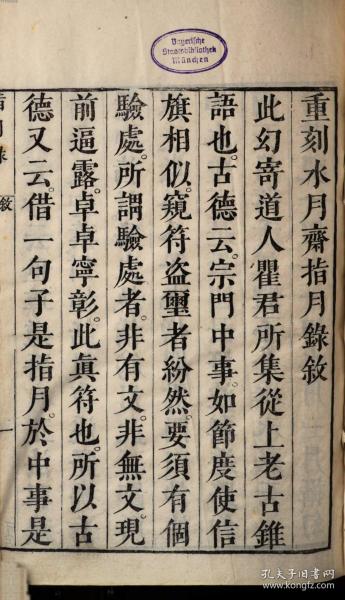 Bayerische
Staatsbibliothek
München
重刻水月齋指月錄敘
此幻寄道人瞿君所集從上老古錐
語也。古德云。宗門中事。如節度使信
旗相似。窺符盜璽者紛然。要須有個
驗處。所謂驗處者。非有文。非無文。現
前逼露。卓卓寧彰。此真符也。所以古
德又云。借一句子是指月。於中事是
敘
一
孔夫子旧书网
www.kongfz.com